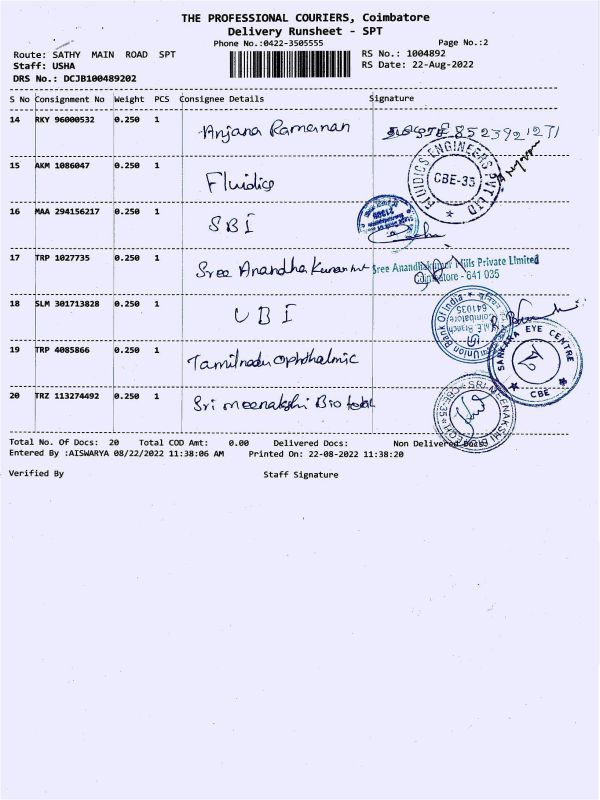 THE PROFESSIONAL COURIERS, Coimbatore
Delivery Runsheet - SPT
Phone No.:0422-3505555
Page No.:2
Route: SATHY MAIN ROAD SPT
RS No.: 1004892
Staff: USHA
RS Date: 22-Aug-2022
DRS No.: DCJB100489202
S No Consignment No Weight PCS Consignee Details Signature
14 RKY 96000532 0.250 1 Anjana Ramanan 8523921271
15 AKM 1086047 0.250 1 Fluidics
FLUIDICS ENGINEERS PVT LTD
CBE-35
16 MAA 294156217 0.250 1 SBI
17 TRP 1027735 0.250 1 Sree Anandha Kumar
Sree Anandhakumar Mills Private Limited
Coimbatore - 641 035
18 SLM 301713828 0.250 1 UBI
Union Bank Of India
Coimbatore
641035
SANKARA EYE CENTRE
CBE
19 TRP 4085866 0.250 1 Tamilnadu Ophthalmic
20 TRZ 113274492 0.250 1 Sri meenakshi Bio
SRI MEENAKSHI BIOTECH
CBE-35
Total No. Of Docs: 20 Total COD Amt: 0.00 Delivered Docs: Non Delivered Docs:
Entered By :AISWARYA 08/22/2022 11:38:06 AM Printed On: 22-08-2022 11:38:20
Verified By Staff Signature